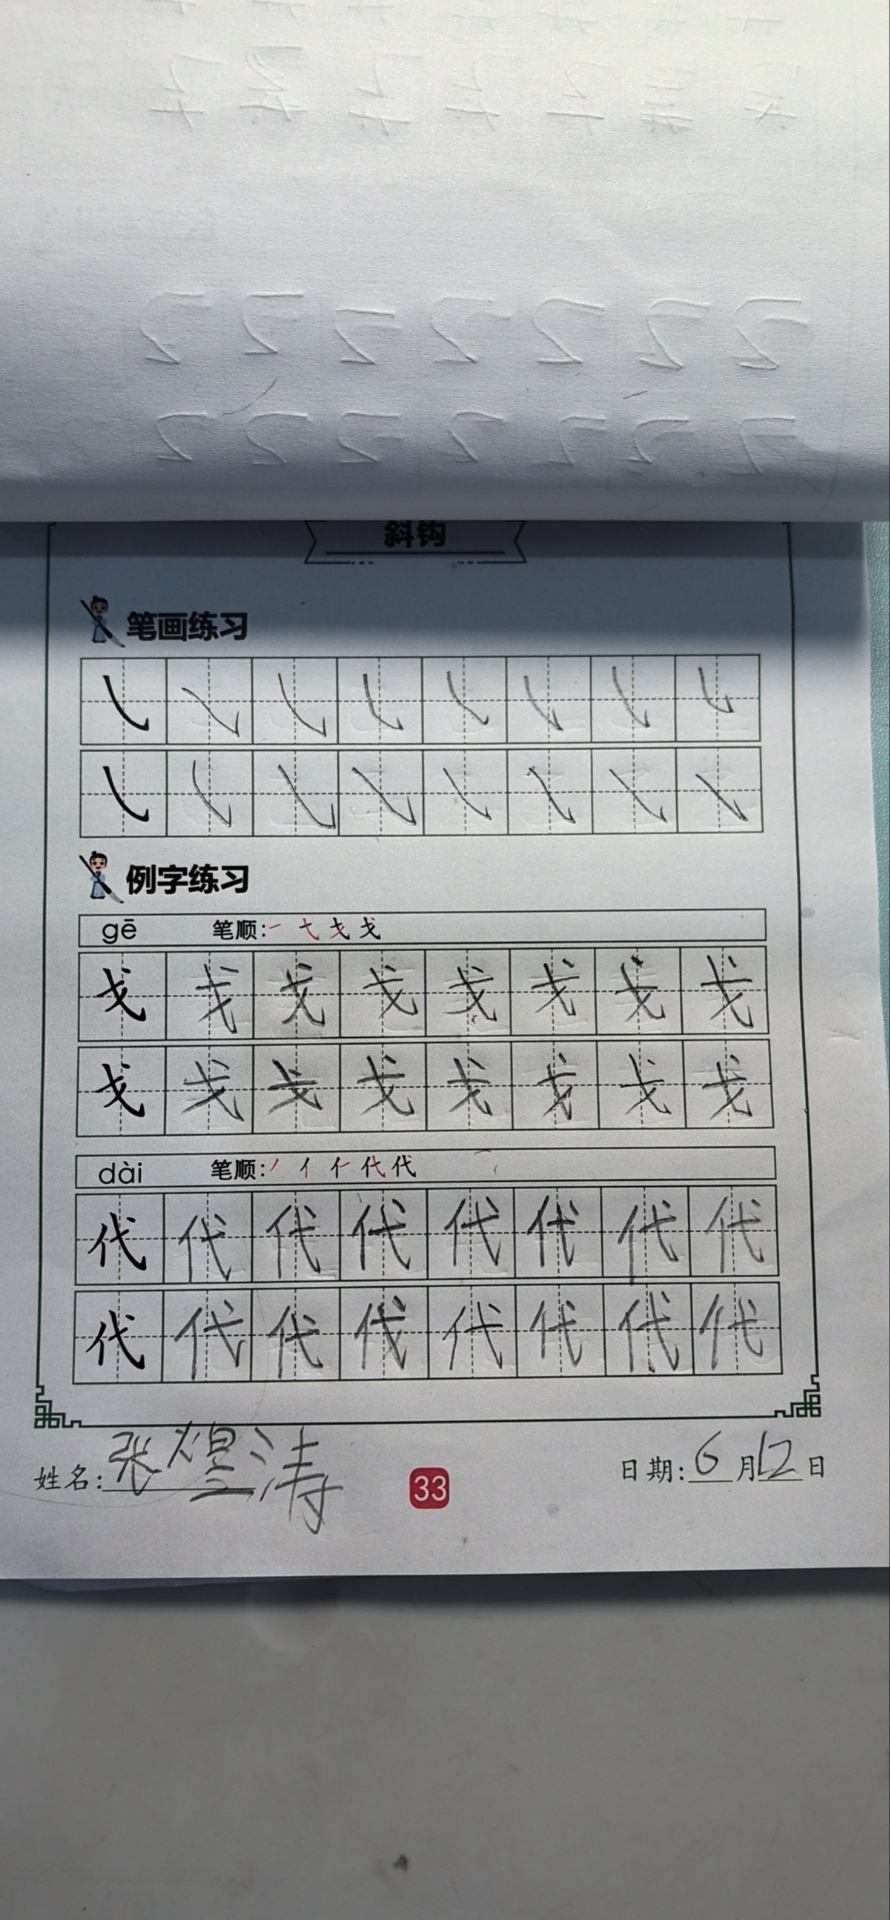 斜钩
笔画练习
㇂ ㇂ ㇂ ㇂ ㇂ ㇂ ㇂ ㇂
㇂ ㇂ ㇂ ㇂ ㇂ ㇂ ㇂ ㇂
例字练习
gē 笔顺:一 七 戈 戈
戈 戈 戈 戈 戈 戈 戈 戈
戈 戈 戈 戈 戈 戈 戈 戈
dài 笔顺:丿 亻 仁 代 代
代 代 代 代 代 代 代 代
代 代 代 代 代 代 代 代
姓名:张煜涛 33 日期:6月12日